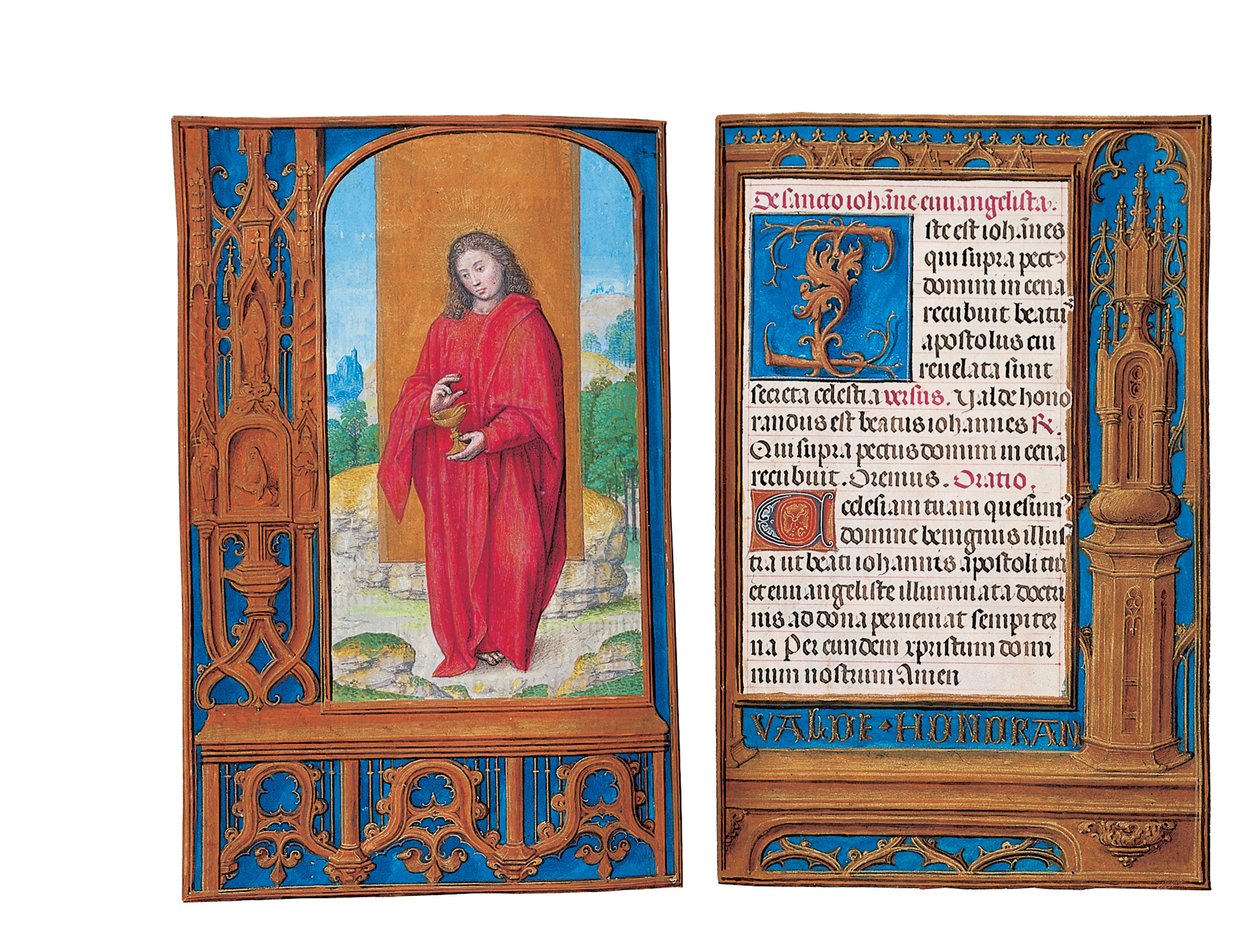 De sancto ioha̅ne euuangelista.
Iste est ioha̅nes
qui supra pect⁹
domini in cena
recubuit beatu̅
apostolus cui
reuelata sunt
secreta celestia versus. Valde hono
randus est beatus iohannes R.
Qui supra pectus domini in cena
recubuit. Oremus. Oratio.
Ecclesiam tuam quesum⁹
domine benignus illus
tra ut beati iohannis apostoli tui
et euuangeliste illuminata doctri
nis ad dona perueniat sempiter
na Per eundem xpristum domi
num nostrum Amen
VALDE · HONORAN